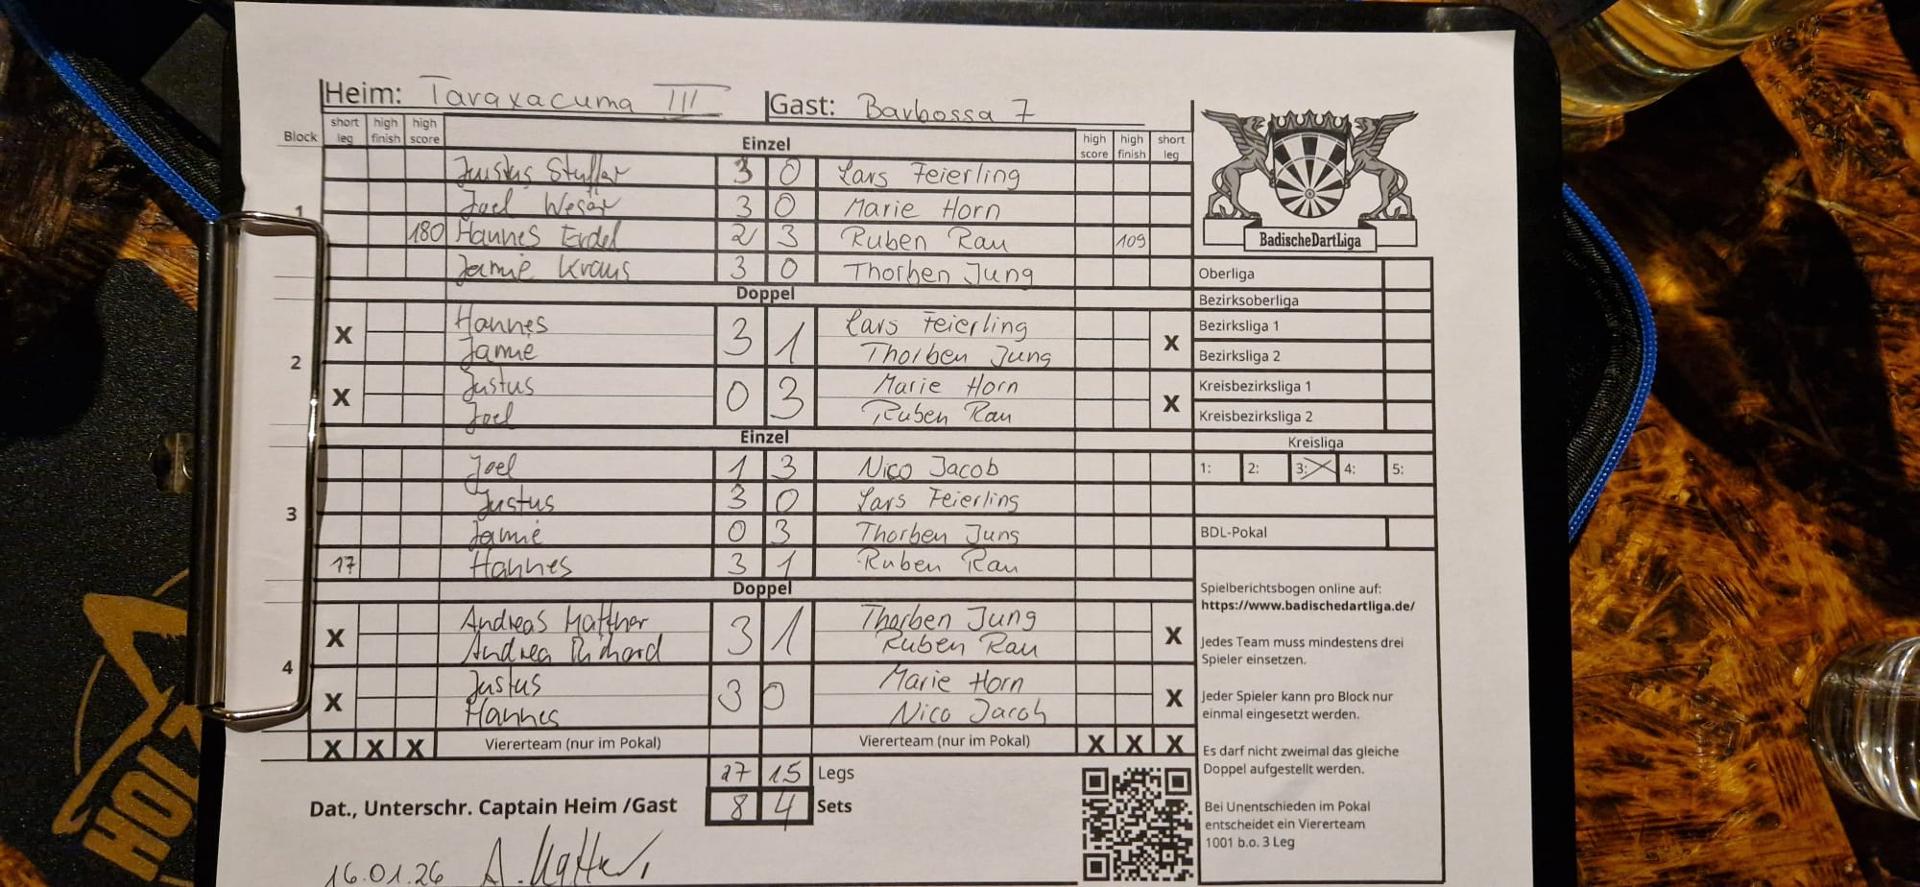 Heim: Taraxacuma III Gast: Barbossa 7
Block short leg high finish high score Einzel high score high finish short leg
Justus 3 0 Lars Feierling
1 Joel 3 0 Marie Horn
180 Hannes Erdel 2 3 Ruben Rau 109
Jamie Kraus 3 0 Thorben Jung
Doppel
2
X Hannes 3 1 Lars Feierling X
Jamie Thorben Jung
X Justus 0 3 Marie Horn X
Joel Ruben Rau
Einzel
3
Joel 1 3 Nico Jacob
Justus 3 0 Lars Feierling
Jamie 0 3 Thorben Jung
17 Hannes 3 1 Ruben Rau
Doppel
4
X Andreas Matther 3 1 Thorben Jung X
Andrea Richard Ruben Rau
X Justus 3 0 Marie Horn X
Hannes Nico Jacob
X X X Viererteam (nur im Pokal) Viererteam (nur im Pokal) X X X
27 15 Legs
Dat., Unterschr. Captain Heim /Gast 8 4 Sets
16.01.26
BadischeDartLiga
Oberliga
Bezirksoberliga
Bezirksliga 1
Bezirksliga 2
Kreisbezirksliga 1
Kreisbezirksliga 2
Kreisliga
1: 2: 3: X 4: 5:
BDL-Pokal
Spielberichtsbogen online auf:
https://www.badischedartliga.de/
Jedes Team muss mindestens drei
Spieler einsetzen.
Jeder Spieler kann pro Block nur
einmal eingesetzt werden.
Es darf nicht zweimal das gleiche
Doppel aufgestellt werden.
Bei Unentschieden im Pokal
entscheidet ein Viererteam
1001 b.o. 3 Leg